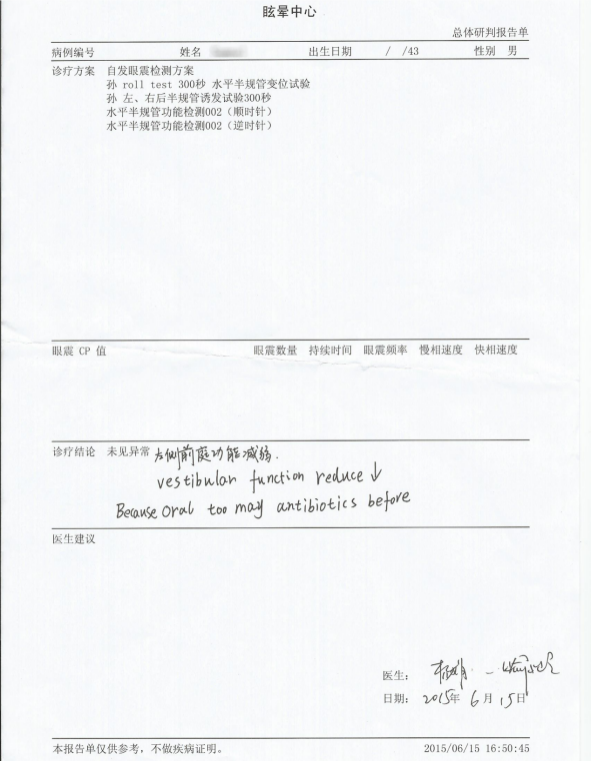 眩晕中心
总体研判报告单
病例编号 姓名 出生日期 / /43 性别 男
诊疗方案 自发眼震检测方案
孙 roll test 300秒 水平半规管变位试验
孙 左、右后半规管诱发试验300秒
水平半规管功能检测002（顺时针）
水平半规管功能检测002（逆时针）
眼震 CP 值 眼震数量 持续时间 眼震频率 慢相速度 快相速度
诊疗结论 未见异常 左侧前庭功能减弱.
vestibular function reduce ↓
Because oral too may antibiotics before
医生建议
医生:
日期: 2015年 6月 15日
本报告单仅供参考，不做疾病证明。 2015/06/15 16:50:45